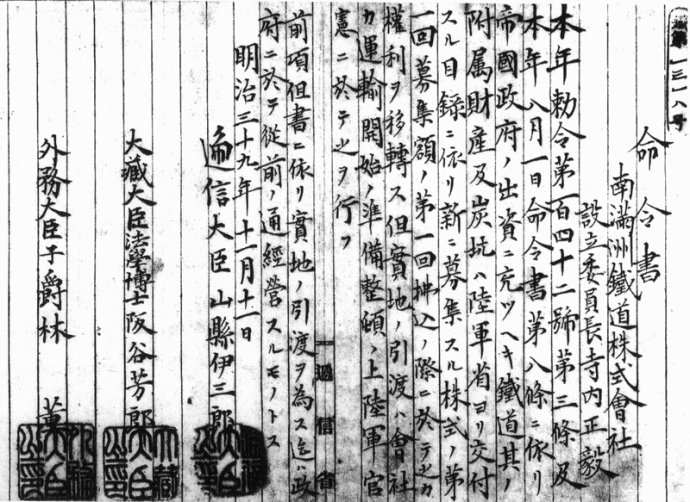 第一三一八号
命令書
南滿洲鐵道株式會社
設立委員長寺内正毅
本年勅令第百四十二號第三條及
本年八月一日命令書第八條ニ依リ
帝國政府ノ出資ニ充ツヘキ鐵道其ノ
附属財産及炭坑ハ陸軍省ヨリ交付
スル目錄ニ依リ新ニ募集スル株式ノ第
一回募集額ノ第一回拂込ノ際ニ於テ之カ
權利ヲ移轉ス但實地ノ引渡ハ會社
カ運輸開始ノ準備整頓ノ上陸軍官
憲ニ於テ之ヲ行フ
前項但書ニ依リ實地ノ引渡ヲ為ス迄ハ政
府ニ於テ從前ノ通經營スルモノトス
明治三十九年十一月十一日
遞信大臣山縣伊三郎
大藏大臣法學博士阪谷芳郎
外務大臣子爵林董
遞信省